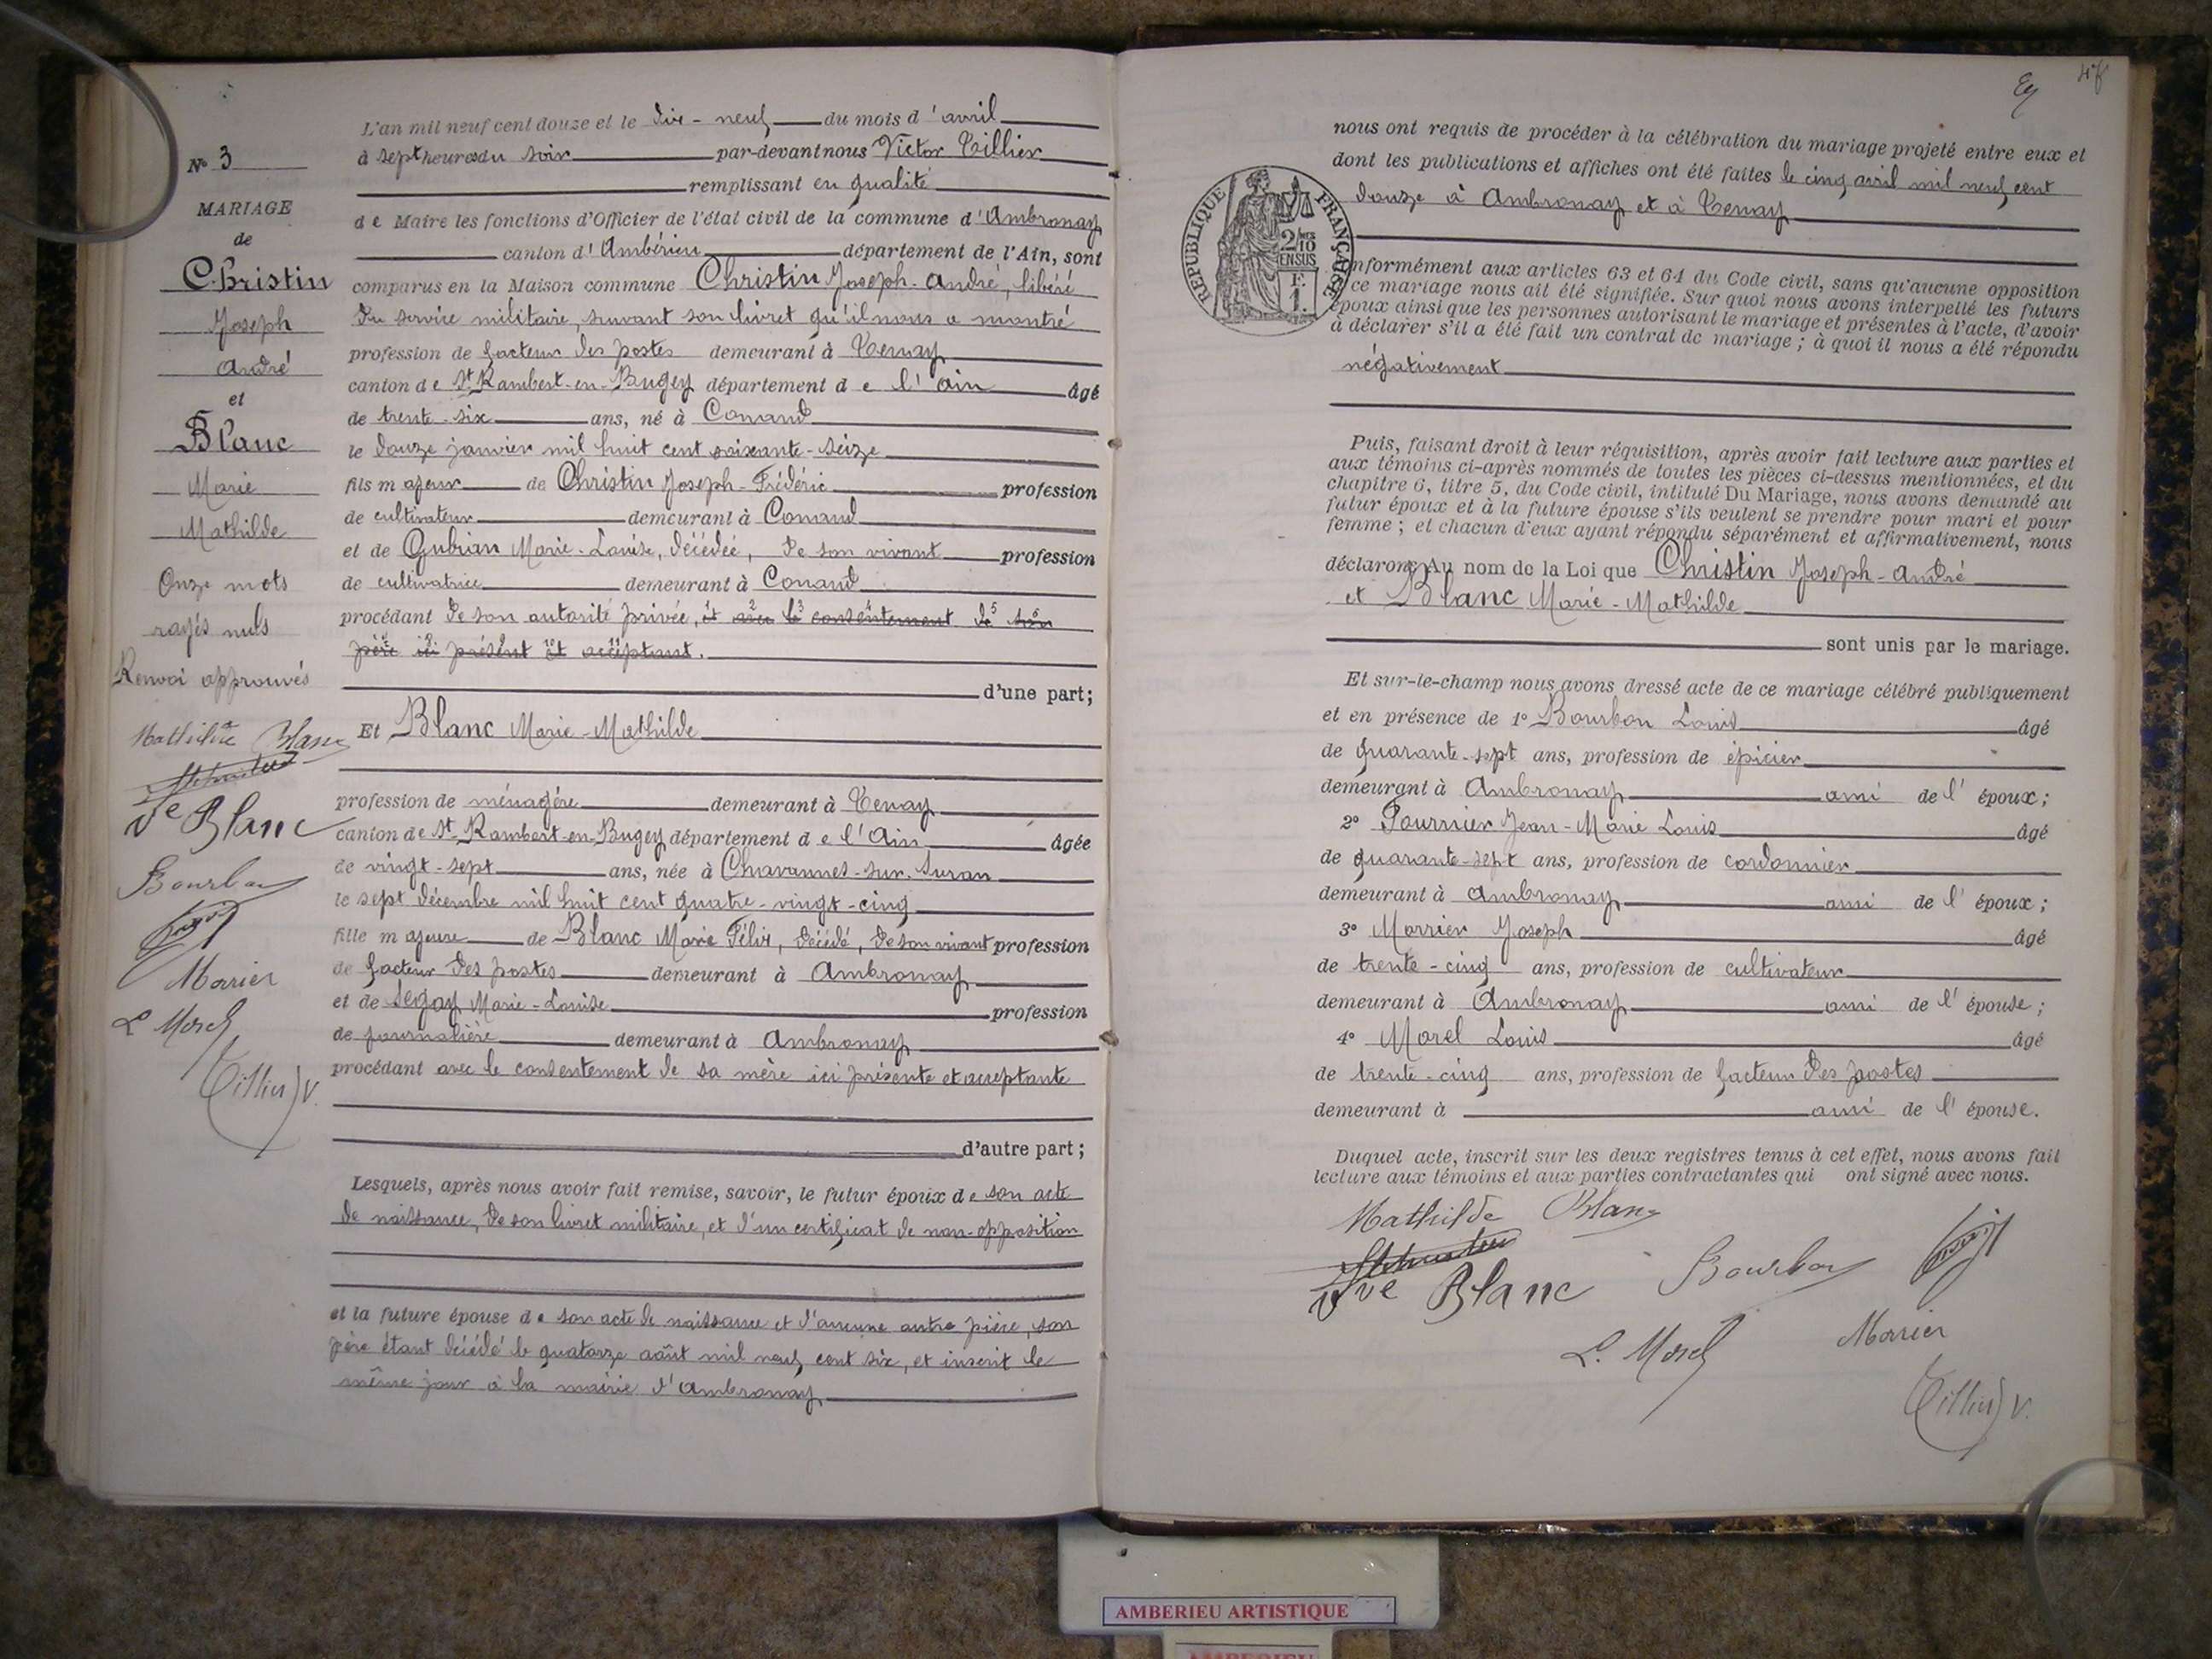 N° 3
MARIAGE
de
Christin
Joseph
André
et
Blanc
Marie
Mathilde
Onze mots
rayés nuls
Renvoi approuvés
Mathilde Blanc
Ve Blanc
Bourbon
Morrier
L Morel
Tillier V.
L'an mil neuf cent douze et le dix-neuf du mois d'avril
à sept heures du soir par-devant nous Victor Tillier
remplissant en qualité
de Maire les fonctions d'Officier de l'état civil de la commune d'Ambronay
canton d'Ambérieu département de l'Ain, sont
comparus en la Maison commune Christin Joseph-André, libéré
du service militaire, suivant son livret qu'il nous a montré
profession de facteur des postes demeurant à Tenay
canton de St Rambert-en-Bugey département de l'ain âgé
de trente-six ans, né à Conand
le douze janvier mil huit cent soixante-seize
fils majeur de Christin Joseph-Frédéric profession
de cultivateur demeurant à Conand
et de Gubian Marie-Louise, décédée, de son vivant profession
de cultivatrice demeurant à Conand
procédant de son autorité privée, et avec le consentement de son
père ici présent et acceptant.
d'une part;
Et Blanc Marie-Mathilde
profession de ménagère demeurant à Tenay
canton de St-Rambert-en-Bugey département de l'Ain âgée
de vingt-sept ans, née à Chavannes-sur-Suran
le sept décembre mil huit cent quatre-vingt-cinq
fille majeure de Blanc Marie Félix, décédé, de son vivant profession
de facteur des postes demeurant à Ambronay
et de Marie-Louise profession
de journalière demeurant à Ambronay
procédant avec le consentement de sa mère ici présente et acceptante
d'autre part;
Lesquels, après nous avoir fait remise, savoir, le futur époux de son acte
de naissance, de son livret militaire, et d'un certificat de non-opposition
et la future épouse de son acte de naissance et d'aucune autre pièce, son
père étant décédé le quatorze août mil neuf cent six, et inscrit le
même jour à la mairie d'Ambronay
nous ont requis de procéder à la célébration du mariage projeté entre eux et
dont les publications et affiches ont été faites le cinq avril mil neuf cent
douze à Ambronay et à Tenay
REPUBLIQUE FRANÇAISE
2/10 EN SUS
1 F.
nformément aux articles 63 et 64 du Code civil, sans qu'aucune opposition
ce mariage nous ait été signifiée. Sur quoi nous avons interpellé les futurs
époux ainsi que les personnes autorisant le mariage et présentes à l'acte, d'avoir
à déclarer s'il a été fait un contrat de mariage; à quoi il nous a été répondu
négativement
Puis, faisant droit à leur réquisition, après avoir fait lecture aux parties et
aux témoins ci-après nommés de toutes les pièces ci-dessus mentionnées, et du
chapitre 6, titre 5, du Code civil, intitulé Du Mariage, nous avons demandé au
futur époux et à la future épouse s'ils veulent se prendre pour mari et pour
femme; et chacun d'eux ayant répondu séparément et affirmativement, nous
déclarons Au nom de la Loi que Christin Joseph-André
et Blanc Marie-Mathilde
sont unis par le mariage.
Et sur-le-champ nous avons dressé acte de ce mariage célébré publiquement
et en présence de 1° Bourbon Louis âgé
de quarante-sept ans, profession de épicier
demeurant à Ambronay ami de l'époux;
2° Fournier Jean-Marie Louis âgé
de quarante-sept ans, profession de cordonnier
demeurant à Ambronay ami de l'époux;
3° Morrier Joseph âgé
de trente-cinq ans, profession de cultivateur
demeurant à Ambronay ami de l'épouse;
4° Morel Louis âgé
de trente-cinq ans, profession de facteur des postes
demeurant à ami de l'épouse.
Duquel acte, inscrit sur les deux registres tenus à cet effet, nous avons fait
lecture aux témoins et aux parties contractantes qui ont signé avec nous.
Mathilde Blanc
Vve Blanc Bourbon
L. Morel Morrier
Tillier V.
AMBERIEU ARTISTIQUE
AMBERIEU